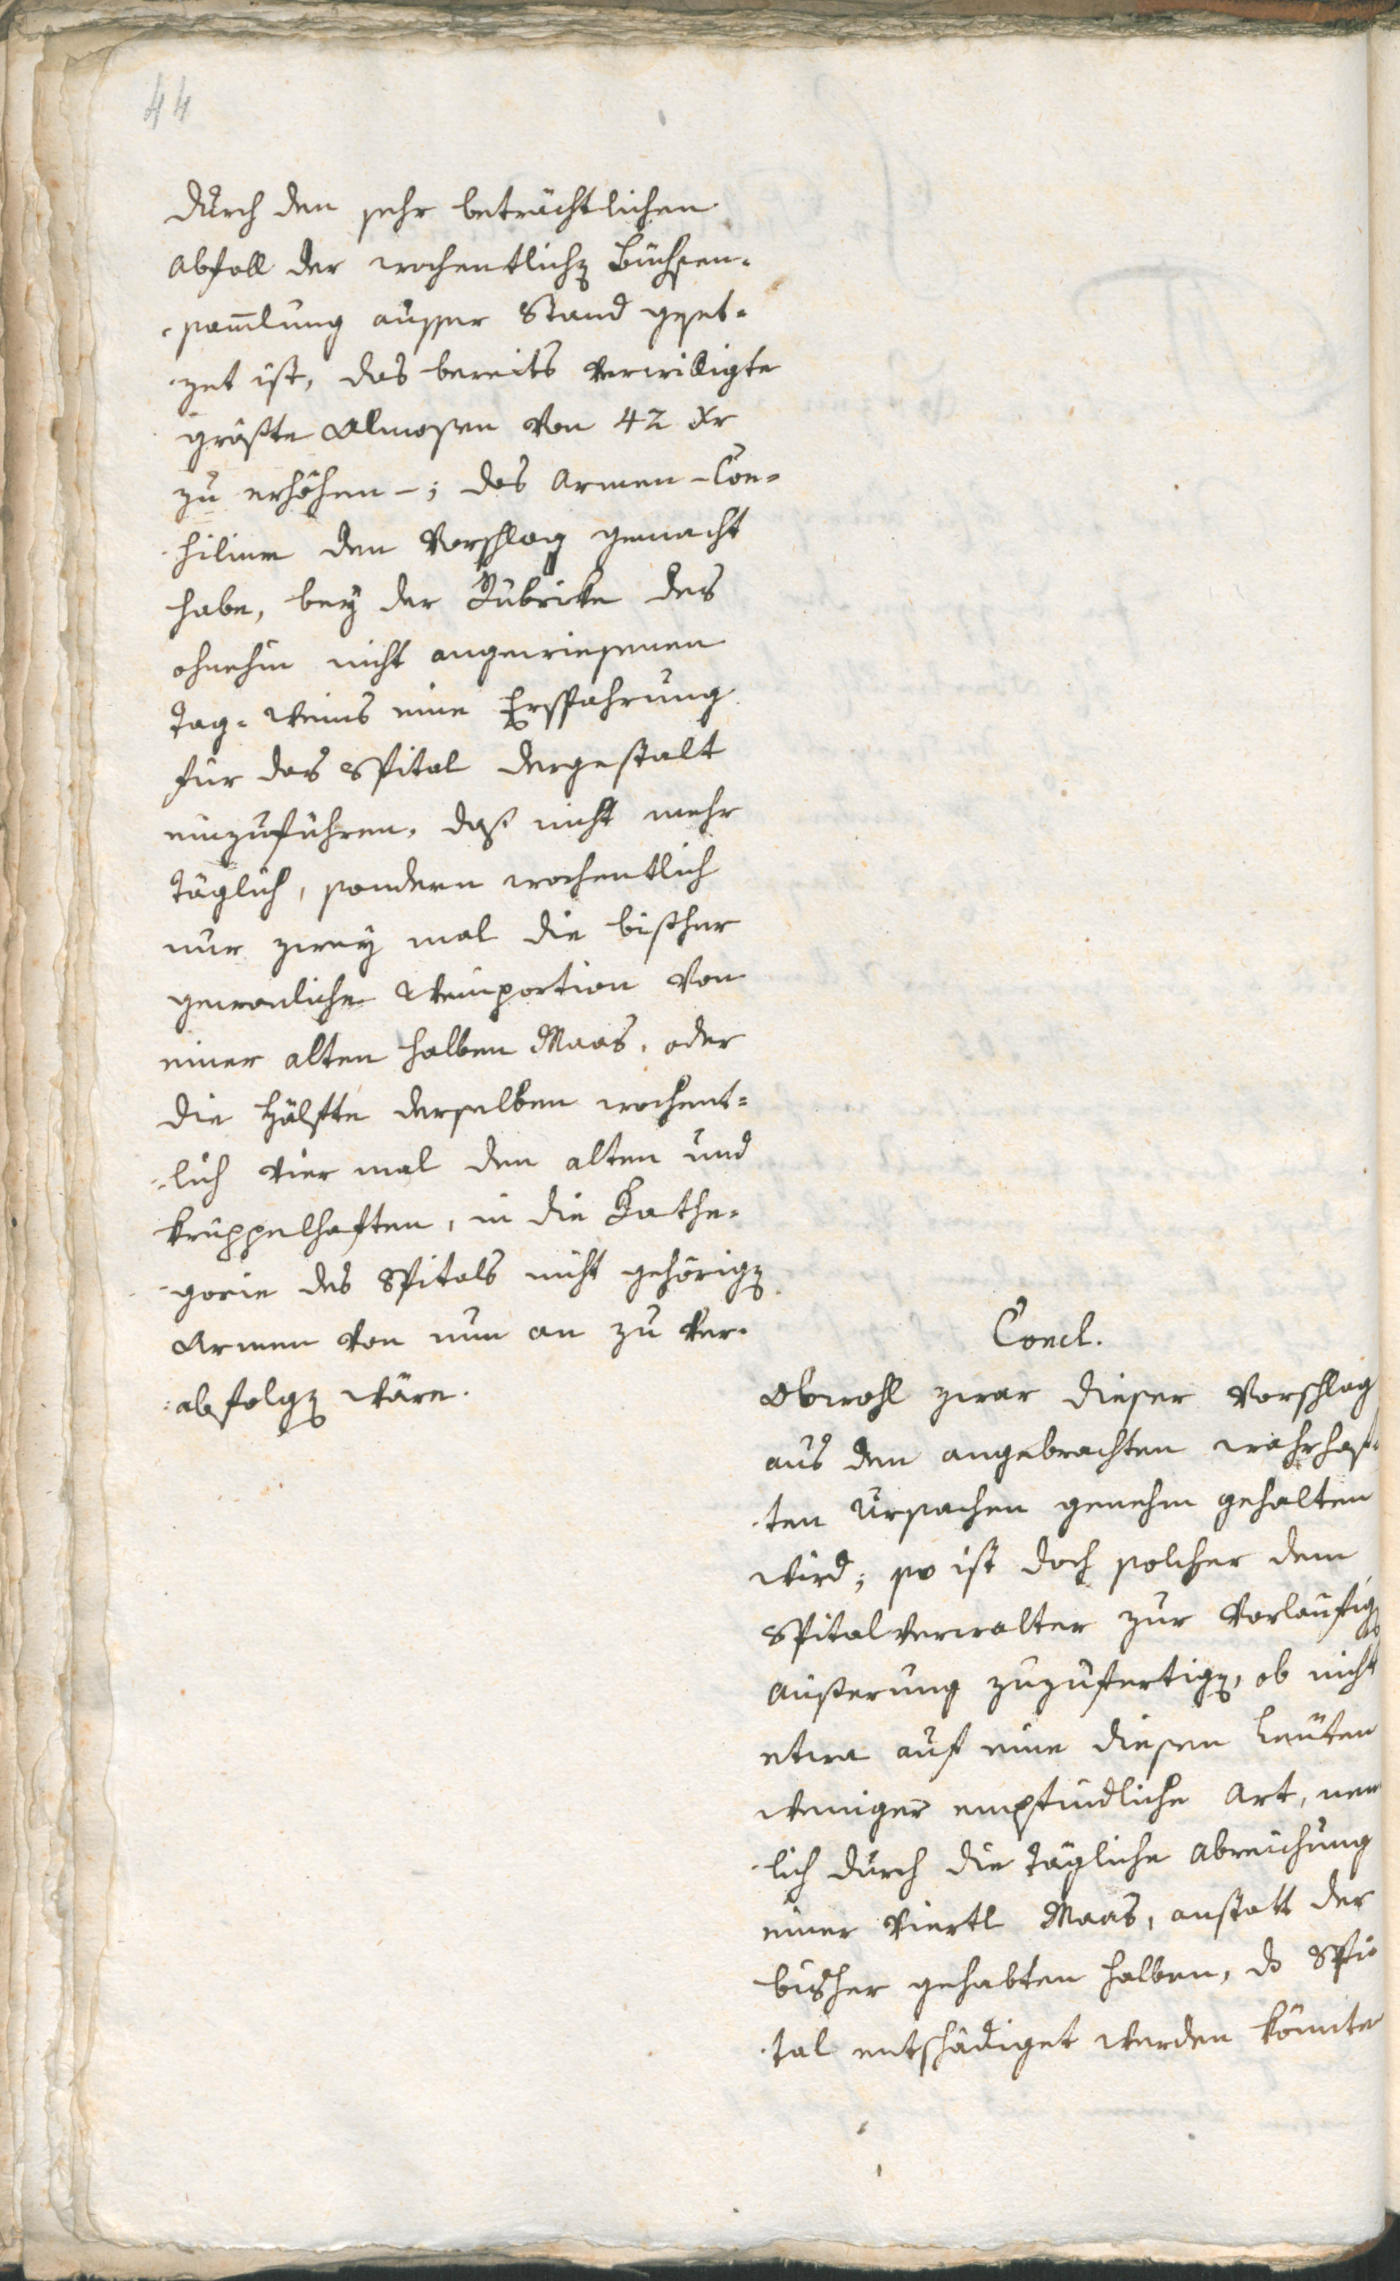 44
durch den sehr beträchtlichen
Abfall der wochentlichen Büchsen-
sam̄lung ausser Stand geset-
zet ist, das bereits verwilligte
größte Almosen von 42 Xr
zu erhöhen -; das Armen-Con-
silium den Vorschlag gemacht
habe, bey der Rubricke des
ohnehin nicht angewiesenen
Tag-Weins eine Ersparung
für das Spital dergestalt
einzuführen, daß nicht mehr
täglich, sondern wochentlich
nur zwey mal die bißher
gewonliche Weinportion von
einer alten halben Maas, oder
die Hälfte derselben wochent-
lich vier mal den alten und
kruppelhaften, in die Kathe-
gorie des Spitals nicht gehörigen
Armen von nun an zu ver-
abfolgen wäre.
Concl.
Obwohl zwar dieser Vorschlag
aus den angebrachten wahrhaf-
ten Ursachen genehm gehalten
wird; so ist doch solcher dem
Spitalverwalter zur vorlaufigen
Äußerung zuzufertigen, ob nicht
etwa auf eine diesen Leuten
weniger empfindliche Art, nem
lich durch die tägliche Abreichung
einer viertl Maas, anstatt der
bisher gehabten halben, ds Spi-
tal entschädiget werden könnte